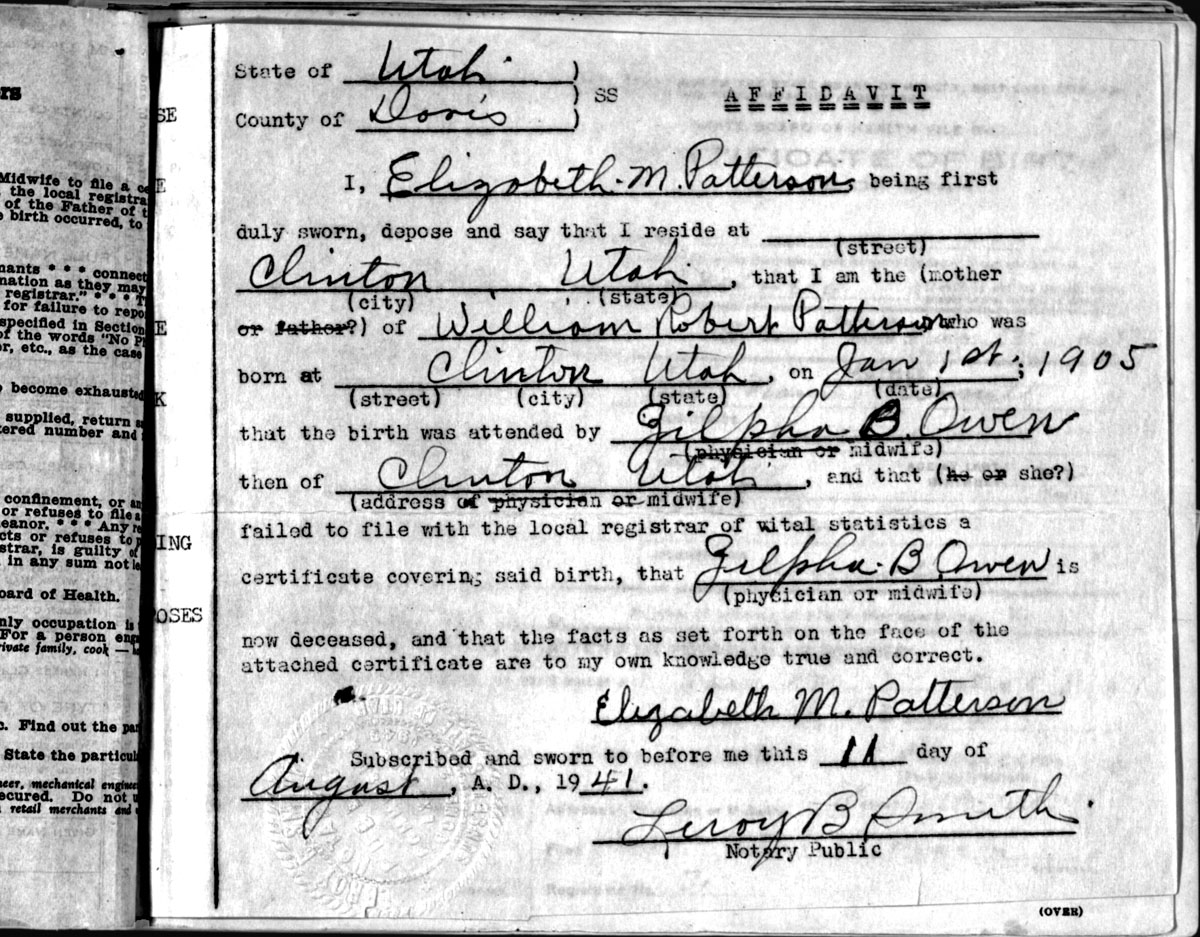 rs
Midwife to file a ce
the local registra
of the Father of t
e birth occurred, to
nants * * * connect
mation as they may
registrar." * * * T
for failure to repo
specified in Section
of the words "No Pl
or, etc., as the case
become exhausted
supplied, return
tered number and
confinement, or an
or refuses to file a
eanor. * * * Any re
cts or refuses to
strar, is guilty of
in any sum not le
oard of Health.
nly occupation is
For a person eng
rivate family, cook —
c. Find out the par
State the particul
neer, mechanical engine
ecured. Do not u
retail merchants and
SE
E
E
K
ING
OSES
State of Utah )
) SS AFFIDAVIT
County of Davis )
I, Elizabeth M. Patterson, being first
duly sworn, depose and say that I reside at
(street)
Clinton Utah, that I am the (mother
(city) (state)
or father?) of William Robert Patterson who was
born at Clinton Utah, on Jan 1st; 1905
(street) (city) (state) (date)
that the birth was attended by Zilpha B. Owen
(physician or midwife)
then of Clinton Utah, and that (he or she?)
(address of physician or midwife)
failed to file with the local registrar of vital statistics a
certificate covering said birth, that Zilpha B Owen is
(physician or midwife)
now deceased, and that the facts as set forth on the face of the
attached certificate are to my own knowledge true and correct.
Elizabeth M. Patterson
Subscribed and sworn to before me this 11 day of
August, A. D., 1941.
Leroy B Smith
Notary Public
(OVER)